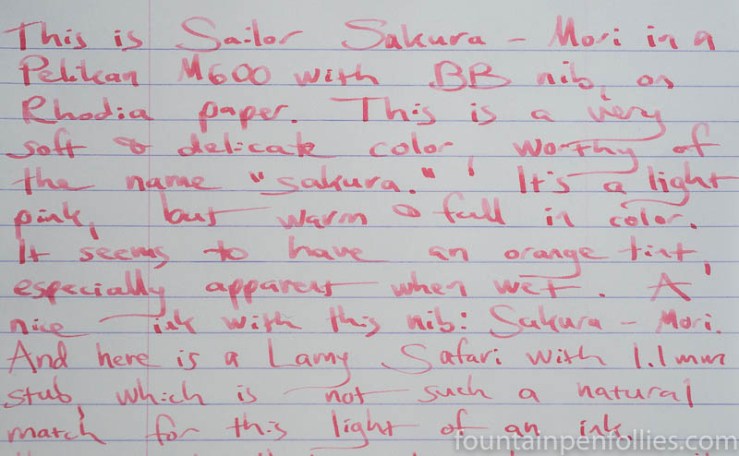 This is Sailor Sakura - Mori in a
Pelikan M600 with BB nib, on
Rhodia paper. This is a very
soft & delicate color, worthy of
the name "sakura." It's a light
pink, but warm & full in color.
It seems to have an orange tint,
especially apparent when wet. A
nice ink with this nib: Sakura - Mori.
And here is a Lamy Safari with 1.1 mm
stub, which is not such a natural
match for this light of an ink,
fountainpenfollies.com